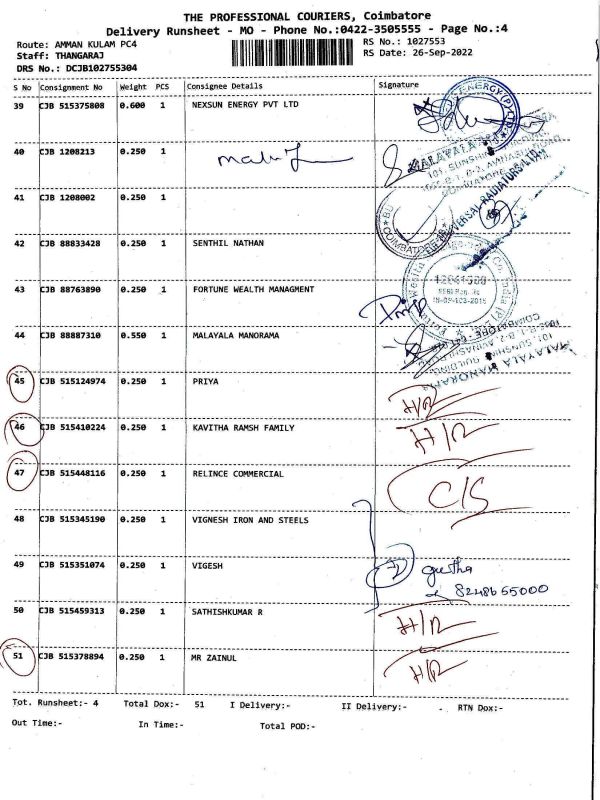 THE PROFESSIONAL COURIERS, Coimbatore
Delivery Runsheet - MO - Phone No.:0422-3505555 - Page No.:4
Route: AMMAN KULAM PC4
RS No.: 1027553
Staff: THANGARAJ
RS Date: 26-Sep-2022
DRS No.: DCJB102755304
S No Consignment No Weight PCS Consignee Details Signature
39 CJB 515375808 0.600 1 NEXSUN ENERGY PVT LTD
40 CJB 1208213 0.250 1
41 CJB 1208002 0.250 1
42 CJB 88833428 0.250 1 SENTHIL NATHAN
43 CJB 88763890 0.250 1 FORTUNE WEALTH MANAGMENT
44 CJB 88887310 0.550 1 MALAYALA MANORAMA
MALAYALA MANORAMA
45 CJB 515124974 0.250 1 PRIYA H/R
46 CJB 515410224 0.250 1 KAVITHA RAMSH FAMILY H/R
47 CJB 515448116 0.250 1 RELINCE COMMERCIAL C/S
48 CJB 515345190 0.250 1 VIGNESH IRON AND STEELS
49 CJB 515351074 0.250 1 VIGESH geetha
8248655000
50 CJB 515459313 0.250 1 SATHISHKUMAR R H/R
51 CJB 515378894 0.250 1 MR ZAINUL H/R
Tot. Runsheet:- 4 Total Dox:- 51 I Delivery:- II Delivery:- . RTN Dox:-
Out Time:- In Time:- Total POD:-